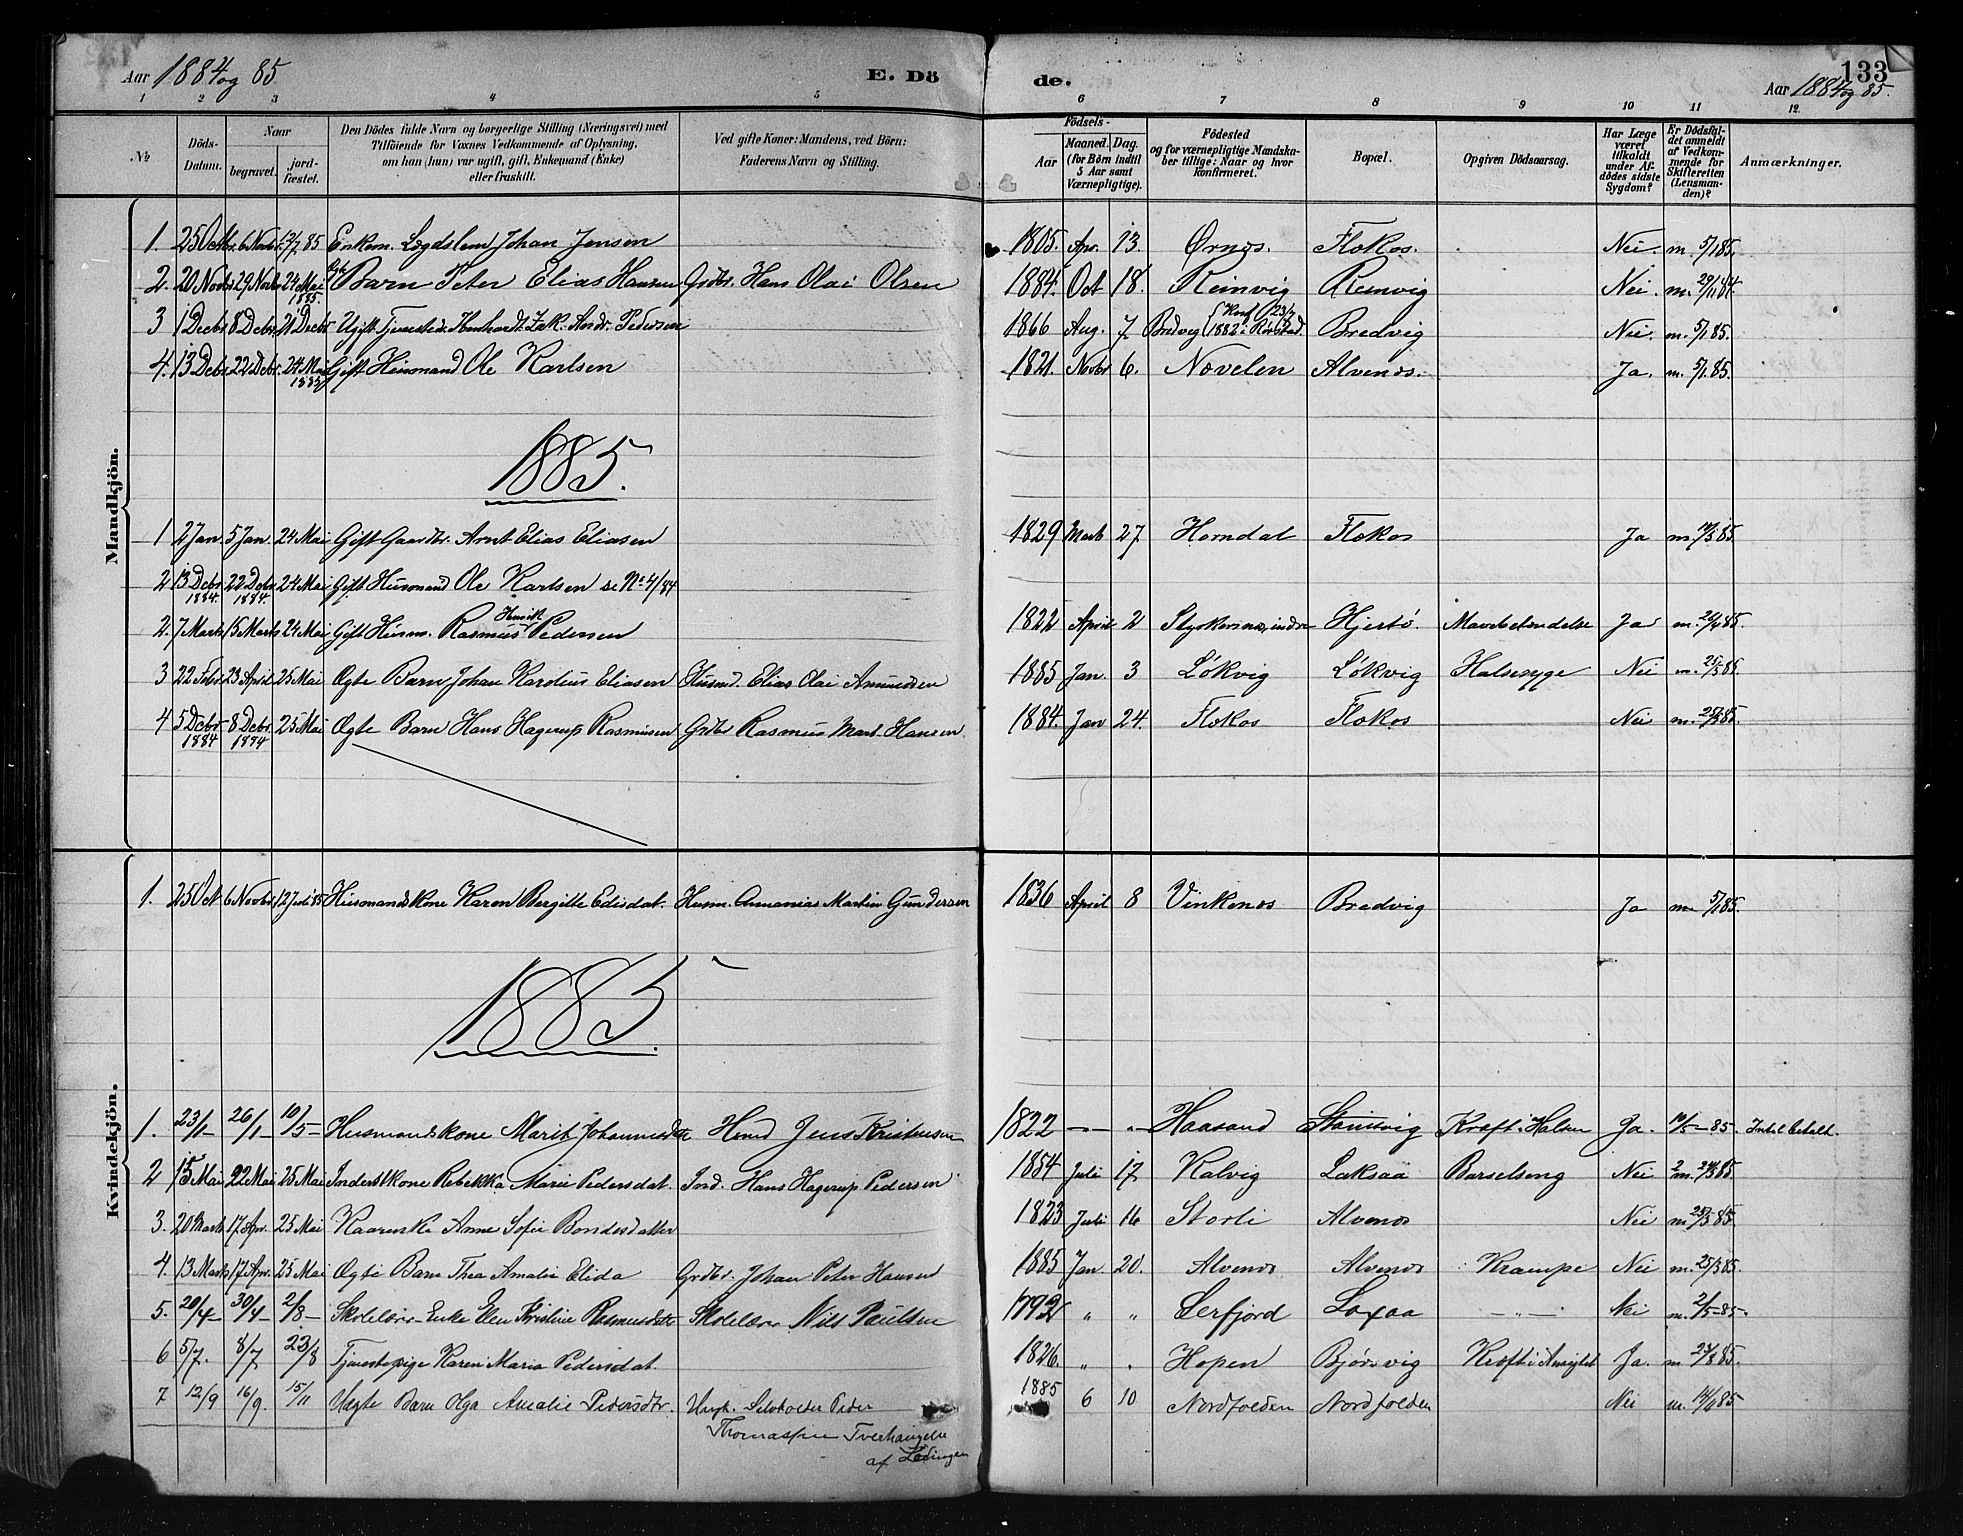 Aar 1884 og 85 E. Dö de. Aar 1884 og 85. 133
1 2 3 4 5 6 7 8 9 10 11 12.
№ Döds-Datum. Naar begravet. jord-fæstet. Den Dödes fulde Navn og borgerlige Stilling (Næringsvei) med Tilföiende for Voxnes Vedkommende af Oplysning, om han (hun) var ugift, gift, Enkemand (Enke) eller fraskilt. Ved gifte Koner: Mandens, ved Börn: Faderens Navn og Stilling. Födsels- Aar Maaned. Dag. (for Börn indtil 5 Aar samt Værnepligtige). Födested og for værnepligtige Mandskaber tillige: Naar og hvor konfirmeret. Bopæl. Opgiven Dödsaarsag. Har Læge været tilkaldt under Afdödes sidste Sygdom? Er Dödsfaldet anmeldt af Vedkommende for Skifteretten (Lensmanden)? Anmærkninger.
Mandkjön.
1. 25 Octbr. 6 Novbr. 12/7 85 Enkem. Lægdslem Johan Jensen 1805. Apr. 13. Ørnes. Flokos. Nei. m. 5/1 85.
2. 20 Novbr 29 Novbr 24 Mai 1885. Barn Peter Elias Hansen Grdbr. Hans Olai Olsen 1884. Oct 18. Reinvig Reinvig Nei. m. 29/11 84.
3 1 Decbr 8 Decbr. 21 Decbr Ugift Tjenested. Zak. Andr. Pedersen 1866 Aug. 7 Bredvig 1882 i Rørstad Bredvig Nei. m. 5/1 85.
4. 13 Decbr. 22 Decbr. 24 Mai 1885 Gift Husmand Ole Karlsen 1821. Novbr 6. Nøvelen Alvenes. Ja. m. 5/1. 85.
1885.
1 2 Jan. 5 Jan. 24 Mai Gift Gaardbr. Arnt Elias Eliasen 1829 Marts 27 Horndal Flokos Ja m. 85.
2 13 Decbr 1884. 22 Decbr 1884. 24 Mai Gift Husmand Ole Karlsen se No 4/84
2. 7 Marts 15 Marts 24 Mai Gift Husm. Rasmus Henrik Pedersen 1822 April 2 indre Hjertø. Mavebetændelse Ja m. 85.
3 22 Febr. 23 April 25 Mai Ægte Barn Johan Karolius Eliasen Husmd. Elias Olai Amundsen 1885 Jan. 3 Løkvig Løkvig Halsesyge Nei m. 25/5 85
4 5 Decbr 1884 8 Decbr. 1884 25 Mai Ægte Barn Hans Hagerup Rasmusen Grdbr Rasmus Mart. Hansen. 1884. Jan 24. Flokos Flokos Nei m. 25/5 85.
Kvindekjön.
1. 25 Oct 6 Novbr. 12 Juli 85 Husmandskone Karen Bergitte Edisdat. Husm. Annanias Martin Gundersen 1836 April 8 Vinkenes Bredvig Ja m. 5/1 85.
1885
1. 23/1 26/1 10/5 Husmandskone Marit Johannesdtr Hmd Jens Kristensen 1822 — — Haasand Kræft i Halsen Ja. 10/5 — 85.
2 15 Mai 22 Mai 25 Mai Inderstkone Rebekka Marie Pedersdat. Ind. Hans Hagerup Pedersen 1854 Juli 17 Kalvig Laksaa Barselseng Nei 85.
3. 20 Marts 17 Apr. 25 Mai Anne Sofie Bendesdatter 1823 Juli 16 Storli Alvenes Nei m. 25/5 85.
4. 13 Marts 17 Apr. 25 Mai Ægte Barn Thea Amalie Elida Grdbr. Johan Peter Hansen 1885 Jan 20. Alvenes Alvenes Krampe Nei m. 25/5 85.
5. 20/4 30/4 2/8 Skolelærer-Enke Elen Kristine Rasmusdtr Skolelærer Nils Paulsen 1792 „ „ Serfjord Laxaa — „ — Nei m. 85
6 5/7. 8/7 23/8 Tjenestepige Karen Maria Pedersdat. 1826. „ „ Hopen Bjørsvig Kræft i Ansigtet Ja. m 85.
7 12/9 16/9. 15/11 Uægte Barn Olga Amalie Pedersdtr. Ungk. Selvholder Peder Thomassen Tverhaugelse af Lødingen 1885 6 10 Nordfolden Nordfolden Nei m. 85